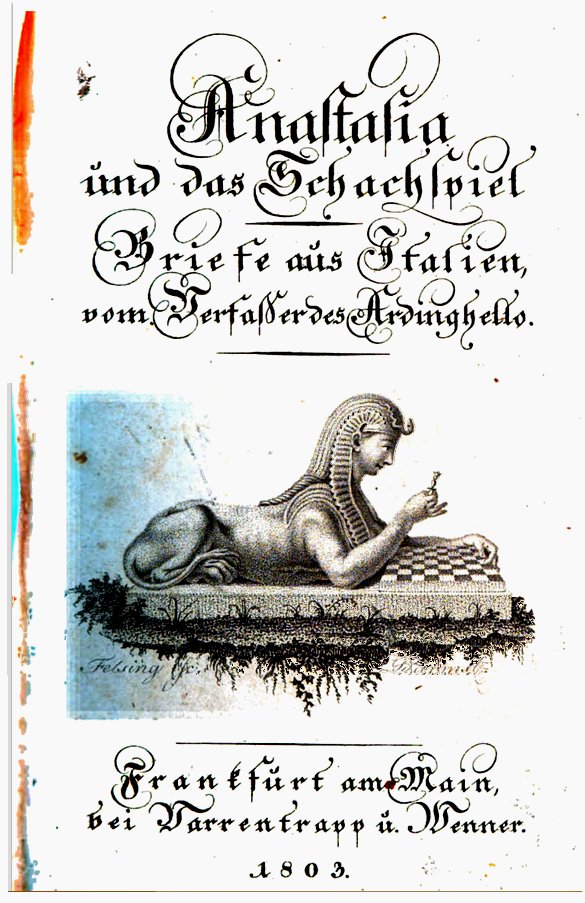 Anastasia
und das Schachspiel
Briefe aus Italien,
vom Verfasser des Ardinghello.
Felsing sc.
Frankfurt am Main,
bei Varrentrapp u. Wenner.
1803.